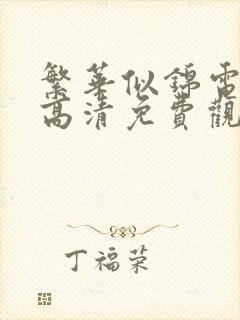 繁華似錦電
高清免費觀
丁福荣